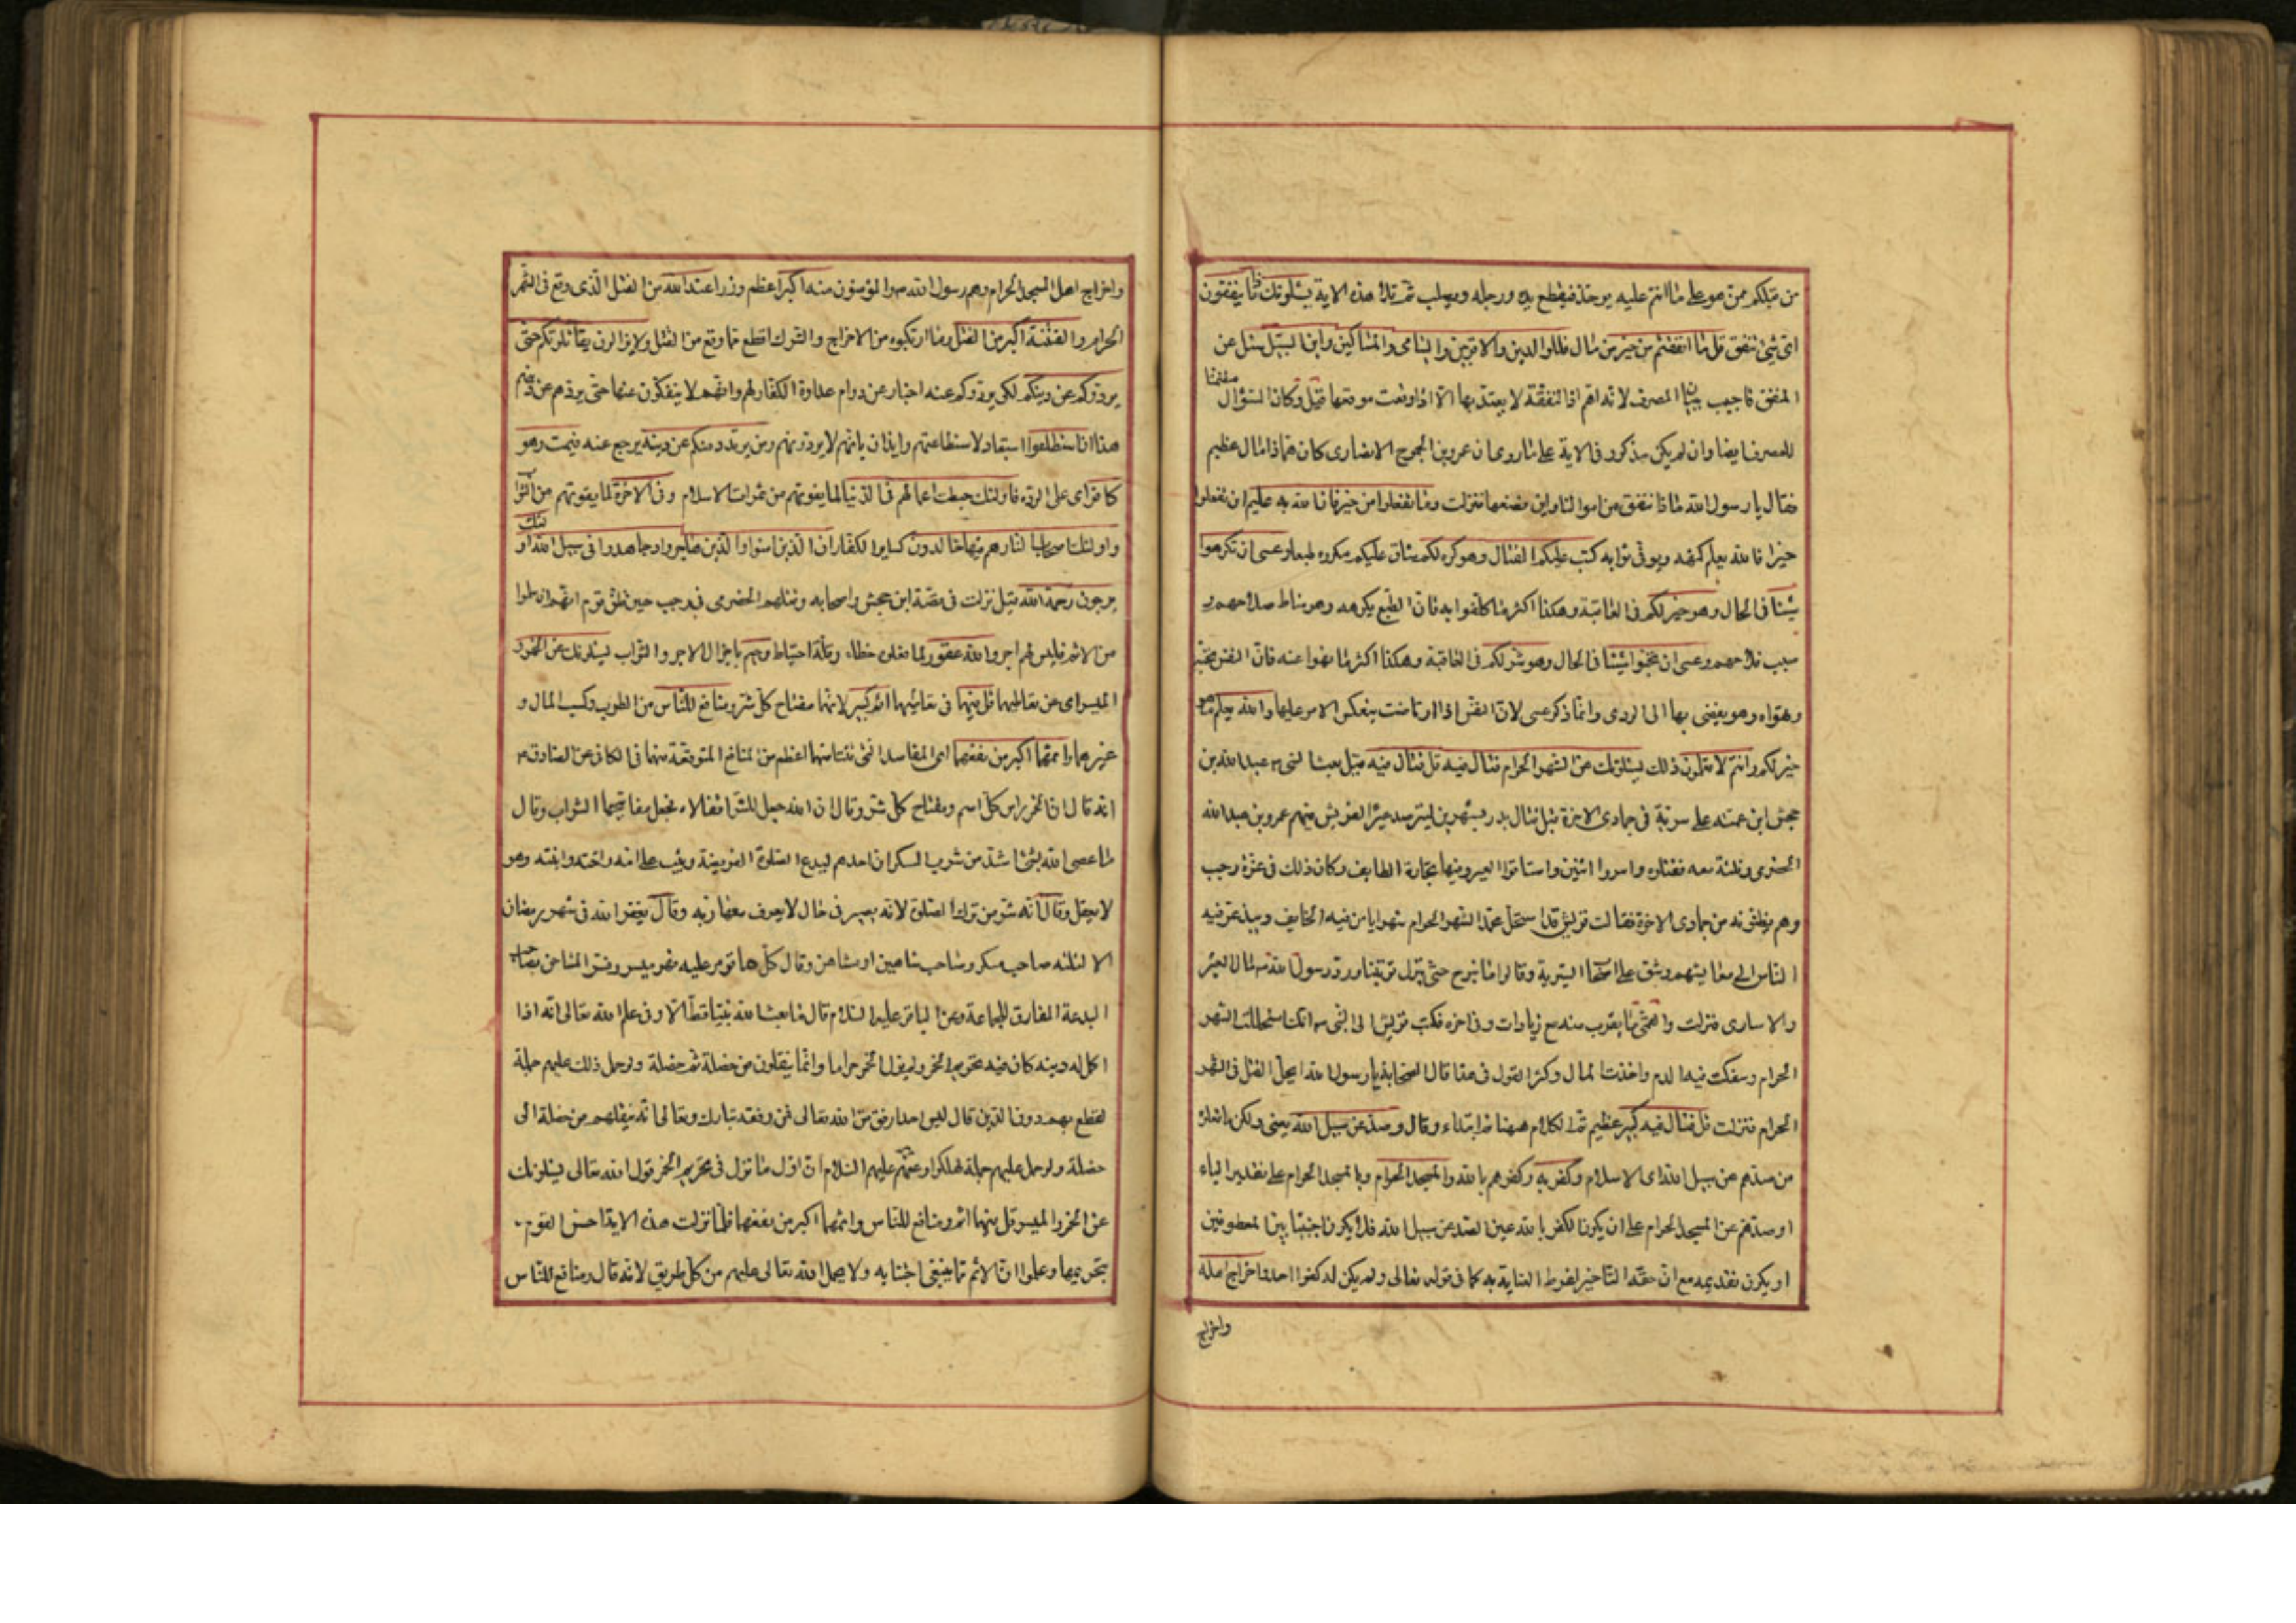 من قبلكم ممن هو على ما انتم عليه يوخذ فيقطع يده ورجله ويصلب ثم تلا هذه الاية يسئلونك ماذا ينفقون
اى شىء ننفق قل ما انفقتم من خير من مال فللوالدين والاقربين واليتامى والمساكين وابن السبيل سئل عن
المنفق فاجيب ببيان المصرف لانه اهم اذ النفقة لا يعتد بها الا اذا وقعت موقعها قيل وكان السؤال متضمنا
للمصرف ايضا وان لم يكن مذكورا فى الاية على ما روى ان عمرو بن الجموح الانصارى كان هما ذا مال عظيم
فقال يا رسول الله ماذا ننفق من اموالنا واين نضعها فنزلت وما تفعلوا من خير فان الله به عليم ان تفعلوا
خيرا فان الله يعلم كنهه ويوفى ثوابه كتب عليكم القتال وهو كره لكم شاق عليكم مكروه طبعا وعسى ان تكرهوا
شيئا فى الحال وهو خير لكم فى العاقبة وهكذا اكثر ما كلفوا به فان الطبع يكرهه وهو مناط صلاحهم و
سبب فلاحهم وعسى ان تحبوا شيئا فى الحال وهو شر لكم فى العاقبة وهكذا اكثر ما نهوا عنه فان النفس تحبه
وتهواه وهو يفضى بها الى الردى وانما ذكر عسى لان النفس اذا ارتاضت ينعكس الامر عليها والله يعلم ما هو
خير لكم وانتم لا تعلمون ذلك يسئلونك عن الشهر الحرام قتال فيه قل قتال فيه قيل بعث النبى ص عبد الله بن
جحش ابن عمته على سرية فى جمادى الاخرة قبل قتال بدر بشهرين ليترصد عيرا لقريش فيهم عمرو بن عبد الله
الحضرمى وثلثة معه فقتلوه واسروا اثنين واستاقوا العير وفيها تجارة الطايف وكان ذلك فى غرة رجب
وهم يظنونه من جمادى الاخرة فقالت قريش قد استحل محمد الشهر الحرام شهرا يامن فيه الخايف ويبذعر فيه
الناس الى معايشهم وشق على اصحاب السرية وقالوا ما نبرح حتى ينزل توبتنا ورد رسول الله ص مال العير
والاسارى فنزلت والقمى ما يقرب منه مع زيادات وفى اخره فكتب قريش الى النبى ص انك استحللت الشهر
الحرام وسفكت فيه الدم واخذت المال وكثر القول فى هذا قال الصحابة يا رسول الله ايحل القتل فى الشهر
الحرام فنزلت قل قتال فيه كبير عظيم تم الكلام ههنا ثم ابتداء وقال وصد عن سبيل الله يعنى ولكن ما فعلوا
من صدهم عن سبيل الله اى الاسلام وكفر به وكفرهم بالله والمسجد الحرام وبالمسجد الحرام على تقدير الباء
او صدهم عن المسجد الحرام على ان يكون الكفر بالله عين الصد عن سبيل الله فلا يكون اجنبيا بين المعطوفين
او يكون تقديمه مع ان حقه التاخير لفرط العناية به كما فى قوله تعالى ولم يكن له كفوا احد واخراج اهله
واخراج
واخراج اهل المسجد الحرام وهم رسول الله ص والمؤمنون منه اكبر اعظم وزرا عند الله من القتل الذى وقع فى الشهر
الحرام والفتنة اكبر من القتل وما ارتكبوه من الاخراج والشرك افظع مما وقع من القتل ولا يزالون يقاتلونكم حتى
يردوكم عن دينكم لكى يردوكم عنه اخبار عن دوام عداوة الكفار لهم وانهم لا ينفكون عنها حتى يردهم عن دينهم
هذا ان استطاعوا استبعاد لاستطاعتهم وايذان بانهم لا يردونهم ومن يرتدد منكم عن دينه يرجع عنه فيمت وهو
كافر اى على الردة فاولئك حبطت اعمالهم فى الدنيا لما يفوتهم من ثمرات الاسلام وفى الاخرة لما يفوتهم من الثواب
واولئك اصحاب النار هم فيها خالدون كساير الكفار ان الذين امنوا والذين هاجروا وجاهدوا فى سبيل الله اولئك
يرجون رحمة الله قيل نزلت فى قصة ابن جحش واصحابه وقتلهم الحضرمى فى رجب حين ظن قوم انهم ان سلموا
من الاثم فليس لهم اجر والله غفور لما فعلوه خطاء وقلة احتياط رحيم باجزال الاجر والثواب يسئلونك عن الخمر و
الميسر اى عن تعاطيهما قل فيهما فى تعاطيهما اثم كبير لانهما مفتاح كل شر ومنافع للناس من الطرب وكسب المال و
غيرهما واثمهما اكبر من نفعهما اى المفاسد التى تنشأ منهما اعظم من المنافع المتوقعة منهما فى الكافى عن الصادق ع
انه قال ان الخمر راس كل اثم ومفتاح كل شر وقال ان الله جعل للشر اقفالا فجعل مفاتيحها الشراب وقال
ما عصى الله بشىء اشد من شرب المسكر ان احدهم ليدع الصلوة الفريضة ويثب على امه واخته وابنته وهو
لا يعقل وقال انه شر من ترك الصلوة لانه يصير فى حال لا يعرف معها ربه وقال يغفر الله فى شهر رمضان
الا لثلثة صاحب مسكر وصاحب شاهين او مشاحن وقال كل ما قومر عليه فهو ميسر وفسر المشاحن بصاحب
البدعة المفارق للجماعة وعن الباقر عليه السلام قال ما بعث الله نبيا قط الا وفى علم الله تعالى انه اذا
اكمل له دينه كان فيه تحريم الخمر ولم يزل الخمر حراما وانما ينقلون من خصلة ثم خصلة ولو حمل ذلك عليهم جملة
لقطع بهم دون الدين قال ليس احد ارفق من الله تعالى فمن رفقه تبارك وتعالى انه ينقلهم من خصلة الى
خصلة ولو حمل عليهم جملة لهلكوا وعنهم عليهم السلام ان اول ما نزل فى تحريم الخمر قول الله تعالى يسئلونك
عن الخمر والميسر قل فيهما اثم ومنافع للناس واثمهما اكبر من نفعهما فلما نزلت هذه الاية احس القوم
بتحريمها وعلموا ان الاثم مما ينبغى اجتنابه ولا يحمل الله تعالى عليهم من كل طريق لانه قال ومنافع للناس